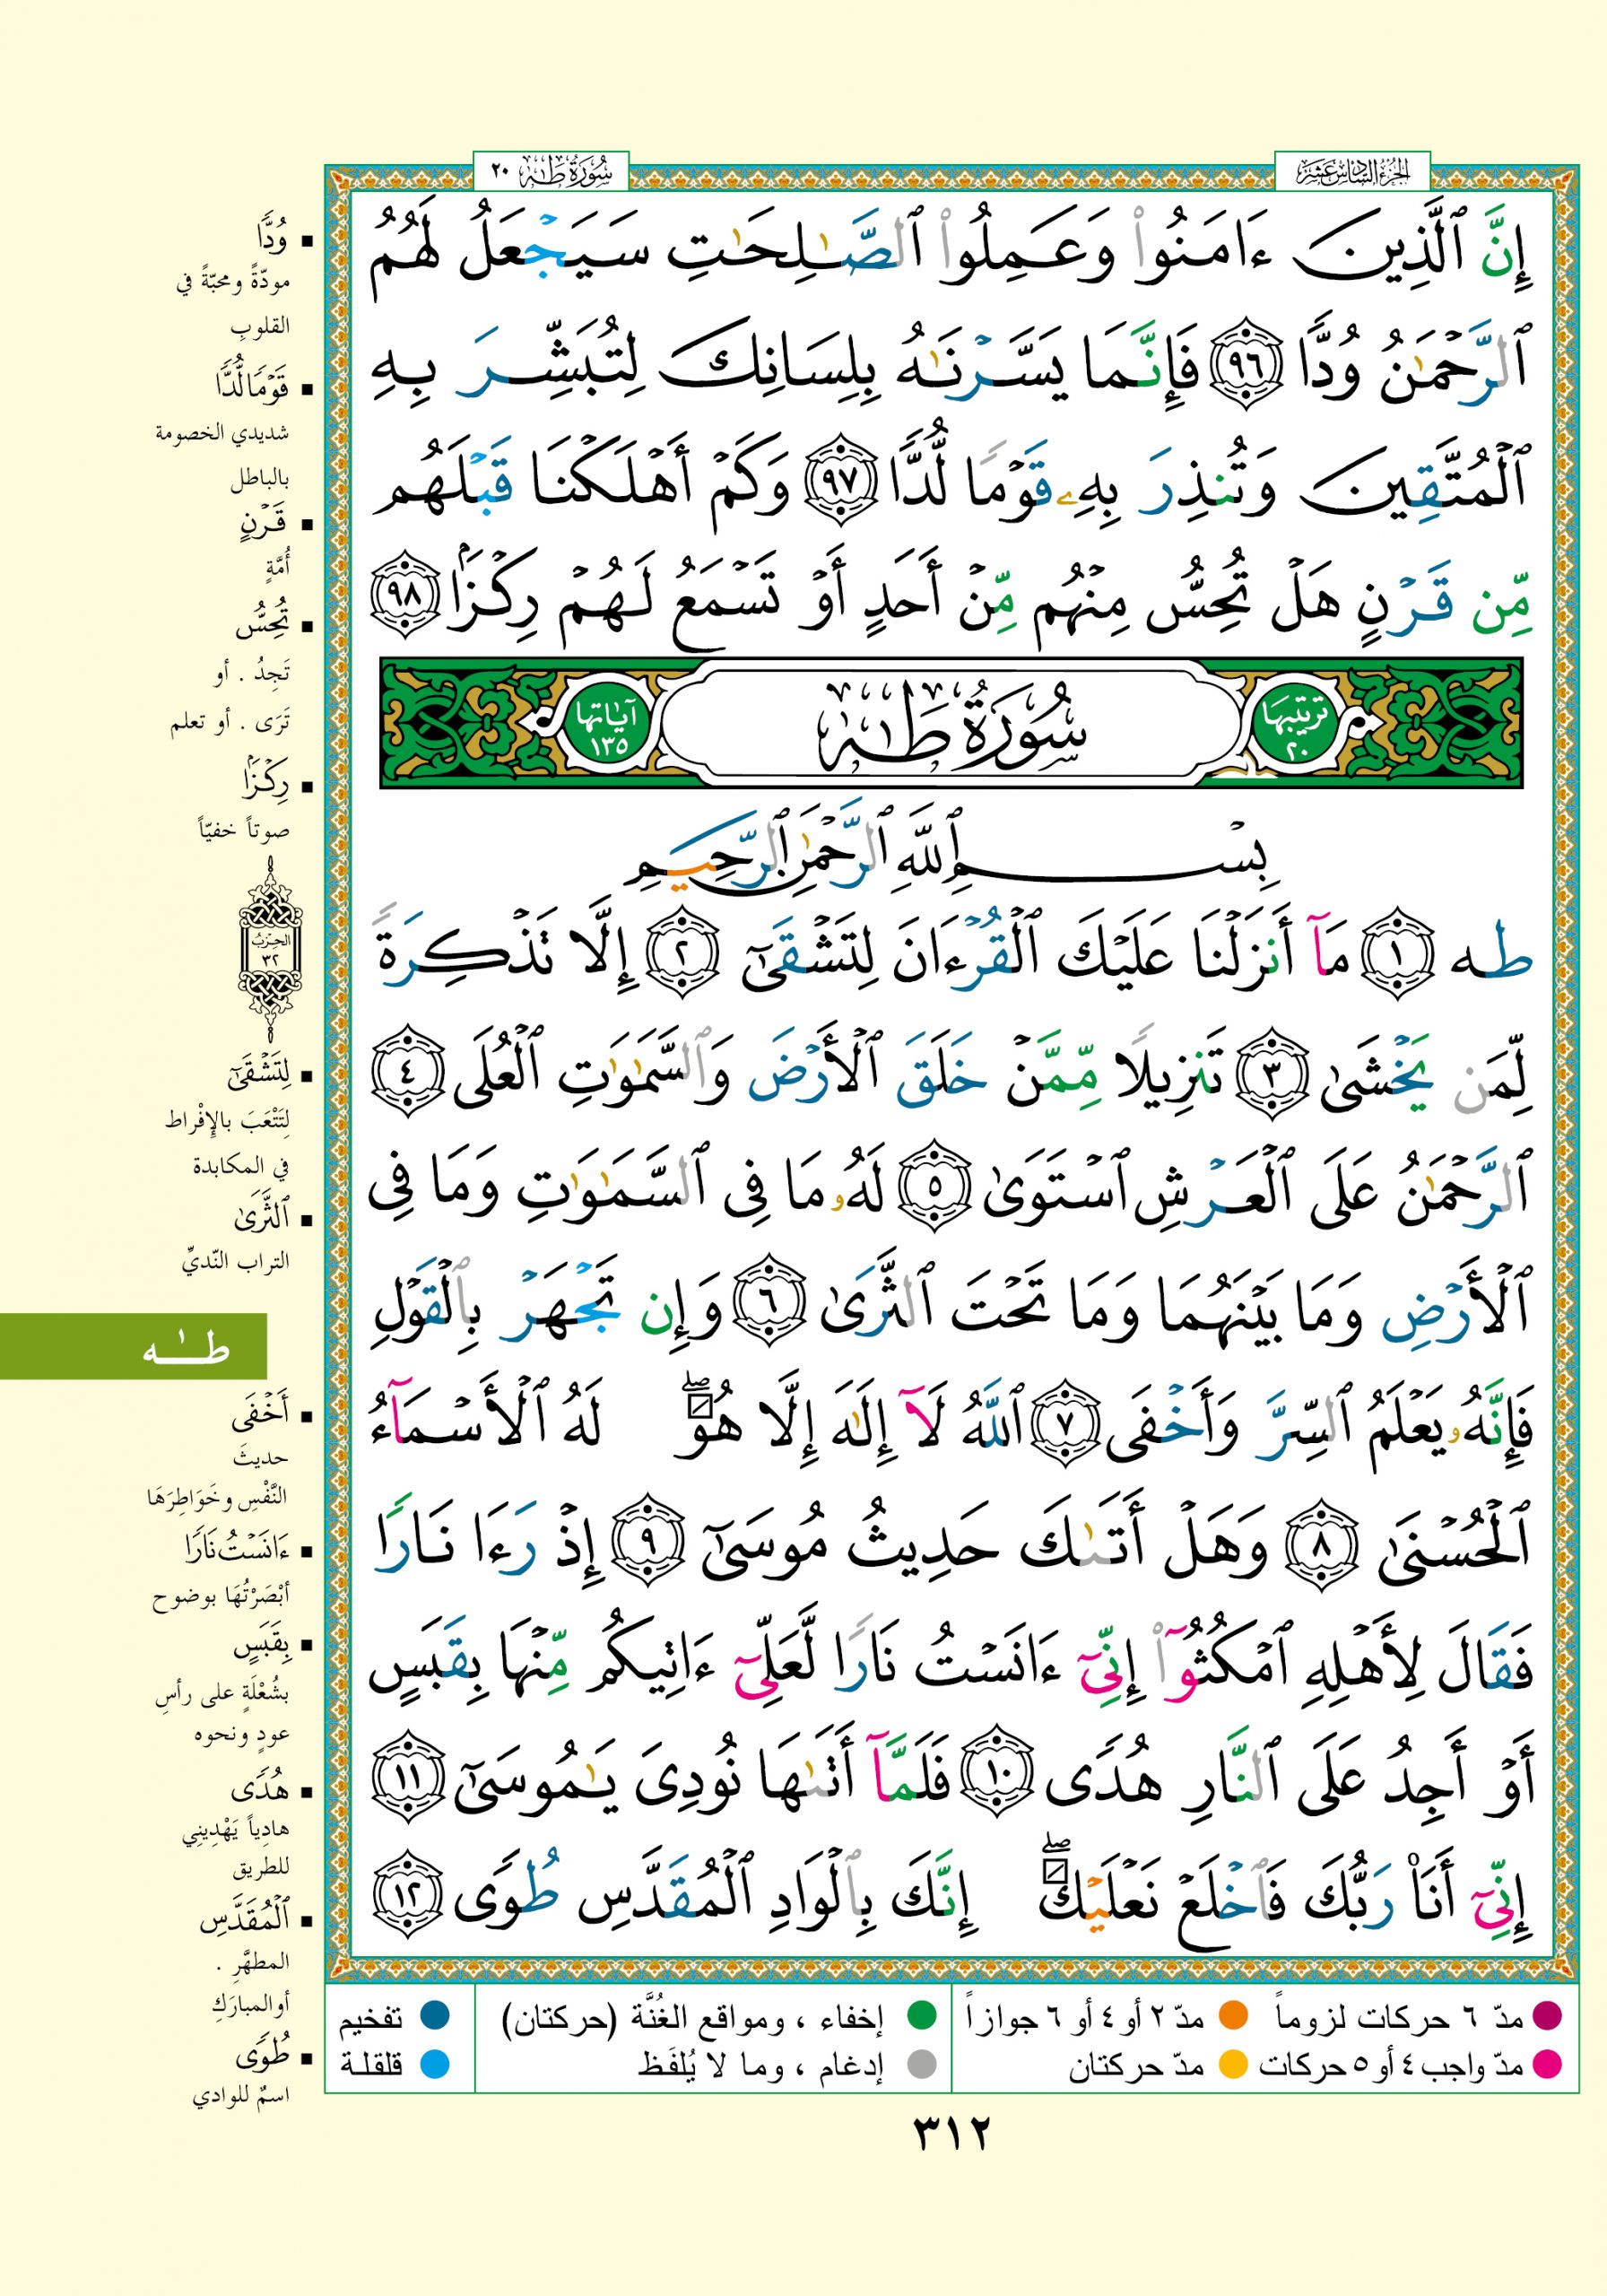 الجزء السادس عشر
سُورَةُ طَهٰ ٢٠
إِنَّ ٱلَّذِينَ ءَامَنُوا۟ وَعَمِلُوا۟ ٱلصَّـٰلِحَـٰتِ سَيَجْعَلُ لَهُمُ
ٱلرَّحْمَـٰنُ وُدًّا ٩٦ فَإِنَّمَا يَسَّرْنَـٰهُ بِلِسَانِكَ لِتُبَشِّرَ بِهِ
ٱلْمُتَّقِينَ وَتُنذِرَ بِهِۦ قَوْمًا لُّدًّا ٩٧ وَكَمْ أَهْلَكْنَا قَبْلَهُم
مِّن قَرْنٍ هَلْ تُحِسُّ مِنْهُم مِّنْ أَحَدٍ أَوْ تَسْمَعُ لَهُمْ رِكْزًۢا ٩٨
ترتيبها ٢٠
سُورَةُ طَهٰ
آياتها ١٣٥
بِسْمِ ٱللَّهِ ٱلرَّحْمَـٰنِ ٱلرَّحِيمِ
طه ١ مَآ أَنزَلْنَا عَلَيْكَ ٱلْقُرْءَانَ لِتَشْقَىٰٓ ٢ إِلَّا تَذْكِرَةً
لِّمَن يَخْشَىٰ ٣ تَنزِيلًا مِّمَّنْ خَلَقَ ٱلْأَرْضَ وَٱلسَّمَـٰوَٰتِ ٱلْعُلَى ٤
ٱلرَّحْمَـٰنُ عَلَى ٱلْعَرْشِ ٱسْتَوَىٰ ٥ لَهُۥ مَا فِى ٱلسَّمَـٰوَٰتِ وَمَا فِى
ٱلْأَرْضِ وَمَا بَيْنَهُمَا وَمَا تَحْتَ ٱلثَّرَىٰ ٦ وَإِن تَجْهَرْ بِٱلْقَوْلِ
فَإِنَّهُۥ يَعْلَمُ ٱلسِّرَّ وَأَخْفَى ٧ ٱللَّهُ لَآ إِلَـٰهَ إِلَّا هُوَ ۖ لَهُ ٱلْأَسْمَآءُ
ٱلْحُسْنَىٰ ٨ وَهَلْ أَتَىٰكَ حَدِيثُ مُوسَىٰٓ ٩ إِذْ رَءَا نَارًا
فَقَالَ لِأَهْلِهِ ٱمْكُثُوٓا۟ إِنِّىٓ ءَانَسْتُ نَارًا لَّعَلِّىٓ ءَاتِيكُم مِّنْهَا بِقَبَسٍ
أَوْ أَجِدُ عَلَى ٱلنَّارِ هُدًى ١٠ فَلَمَّآ أَتَىٰهَا نُودِىَ يَـٰمُوسَىٰٓ ١١
إِنِّىٓ أَنَا۠ رَبُّكَ فَٱخْلَعْ نَعْلَيْكَ ۖ إِنَّكَ بِٱلْوَادِ ٱلْمُقَدَّسِ طُوًى ١٢
وُدًّا
مودّةً ومحبّةً في
القلوبِ
قَوْمًا لُّدًّا
شديدي الخصومة
بالباطل
قَرْنٍ
أُمَّةٍ
تُحِسُّ
تَجِدُ . أو
تَرَى . أو تعلم
رِكْزًۢا
صوتاً خفيّاً
الحزب
٣٢
لِتَشْقَىٰٓ
لِتَتْعَبَ بالإِفْراط
في المكابدة
ٱلثَّرَىٰ
التراب النّديِّ
طــٰـه
أَخْفَى
حديثَ
النَّفْسِ وخَوَاطِرَهَا
ءَانَسْتُ نَارًا
أبْصَرْتُهَا بوضوح
بِقَبَسٍ
بشُعْلَةٍ على رأسِ
عودٍ ونحوه
هُدًى
هادِياً يَهْدِينِي
للطريق
ٱلْمُقَدَّسِ
المطهَّرِ .
أوالمبارَكِ
طُوًى
اسمٌ للوادي
مدّ ٦ حركات لزوماً
مدّ ٢ أو ٤ أو ٦ جوازاً
إخفاء ، ومواقع الغُنَّة (حركتان)
تفخيم
مدّ واجب ٤ أو ٥ حركات
مدّ حركتان
إدغام ، وما لا يُلفَظ
قلقلة
٣١٢